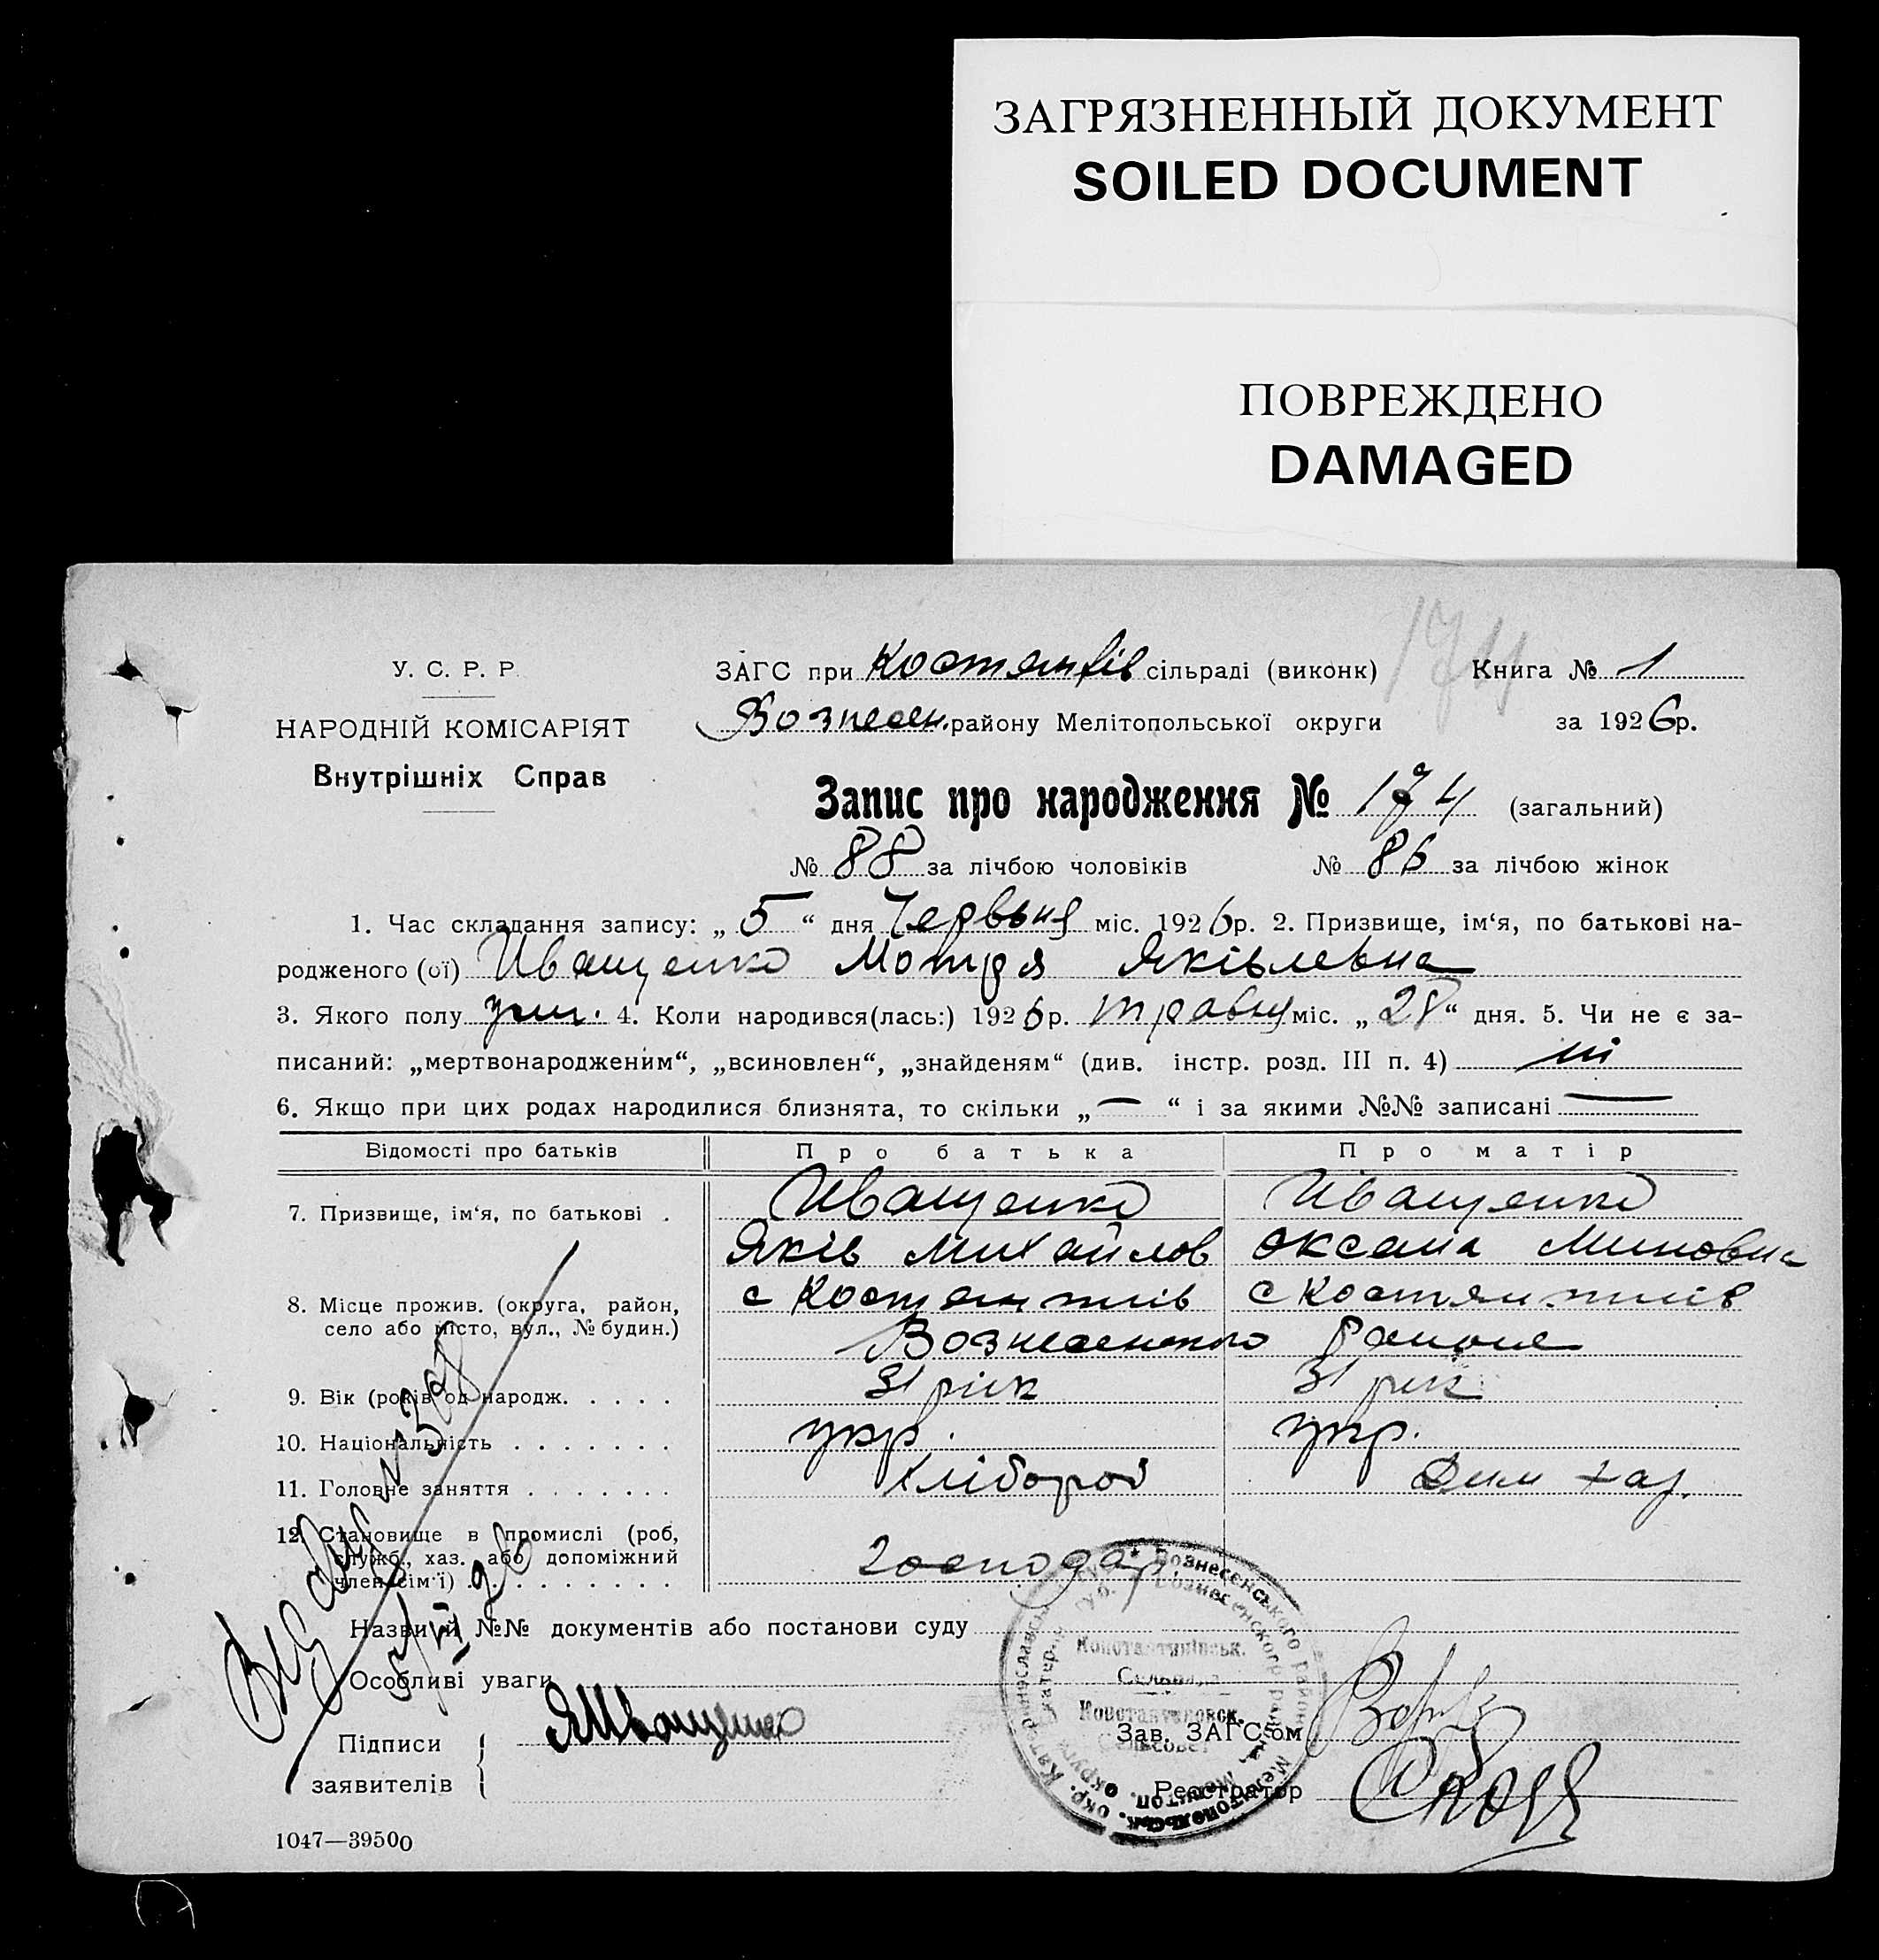 ЗАГРЯЗНЕННЫЙ ДОКУМЕНТ
SOILED DOCUMENT
ПОВРЕЖДЕНО
DAMAGED
174
У. С. Р. Р.
НАРОДНІЙ КОМІСАРІЯТ
Внутрішніх Справ
ЗАГС при Костянтів сільраді (виконк) Книга № 1
Вознесен. району Мелітопольської округи за 1926р.
Запис про народження № 174 (загальний)
№ 88 за лічбою чоловіків № 86 за лічбою жінок
1. Час складання запису: „ 5 “ дня Червьня міс. 1926р. 2. Призвище, ім‘я, по батькові на-
родженого (ої) Иващенко Мотря Яківлевна
3. Якого полу жін. 4. Коли народився(лась:) 1926р. травня міс. „ 28 “ дня. 5. Чи не є за-
писаний: „мертвонародженим“, „всиновлен“, „знайденям“ (див. інстр. розд. III п. 4) ні
6. Якщо при цих родах народилися близнята, то скільки „ — “ і за якими №№ записані —
Відомості про батьків Про батька Про матір
7. Призвище, ім‘я, по батькові . Иващенко Иващенко
Яків Михайлов Оксана Миновна
8. Місце прожив. (округа, район, с Костянтнів с Костянтнів
село або місто, вул., № будин.) Вознесенского района
9. Вік (років од народж. . . . . 31 рік 31 рік
10. Національність . . . . . . . укр. укр.
11. Головне заняття . . . . . . . Хлібороб Дом хаз.
12. Становище в промислі (роб,
служб., хаз. або допоміжний
член сім‘ї) . . . . . . . . . господар
Назви й №№ документів або постанови суду
Особливі уваги
Підписи
заявителів
ЯИващенко
Зав. ЗАГС‘ом
Реєстратор
1047—39500